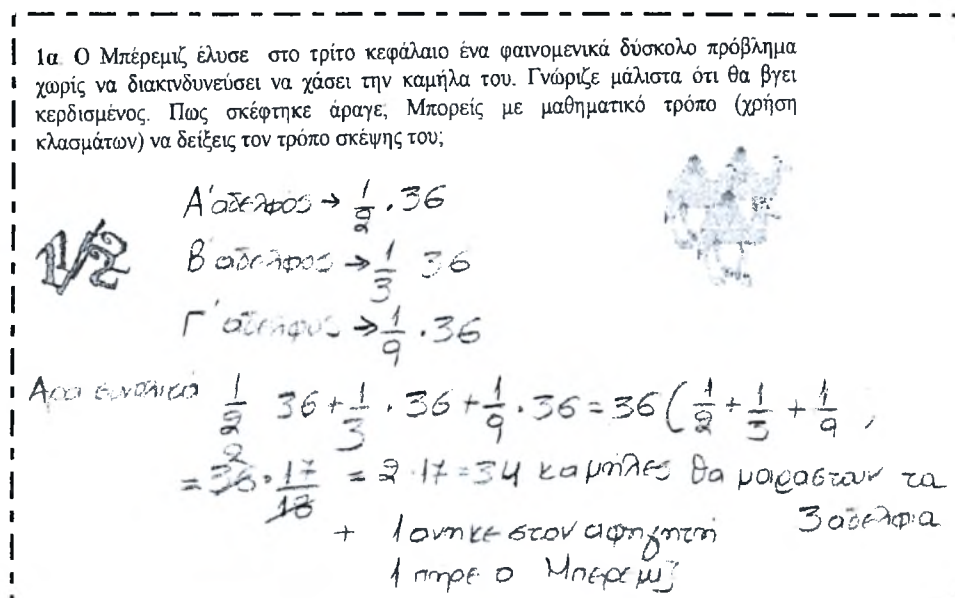 1α. Ο Μπέρεμιζ έλυσε στο τρίτο κεφάλαιο ένα φαινομενικά δύσκολο πρόβλημα
χωρίς να διακινδυνεύσει να χάσει την καμήλα του. Γνώριζε μάλιστα ότι θα βγει
κερδισμένος. Πως σκέφτηκε άραγε; Μπορείς με μαθηματικό τρόπο (χρήση
κλασμάτων) να δείξεις τον τρόπο σκέψης του;
Α' αδελφός → 1/2 . 36
1/2
Β' αδελφος → 1/3 36
Γ' αδελφος → 1/9 . 36
Αρα συνολικά 1/2 36 + 1/3 . 36 + 1/9 . 36 = 36 (1/2 + 1/3 + 1/9 ,
2
= 36 . 17/18 = 2 . 17 = 34 καμήλες θα μοιραστουν τα
+ 1 ανηκε στον αφηγητή 3 αδελφια
1 πηρε ο Μπερεμιζ